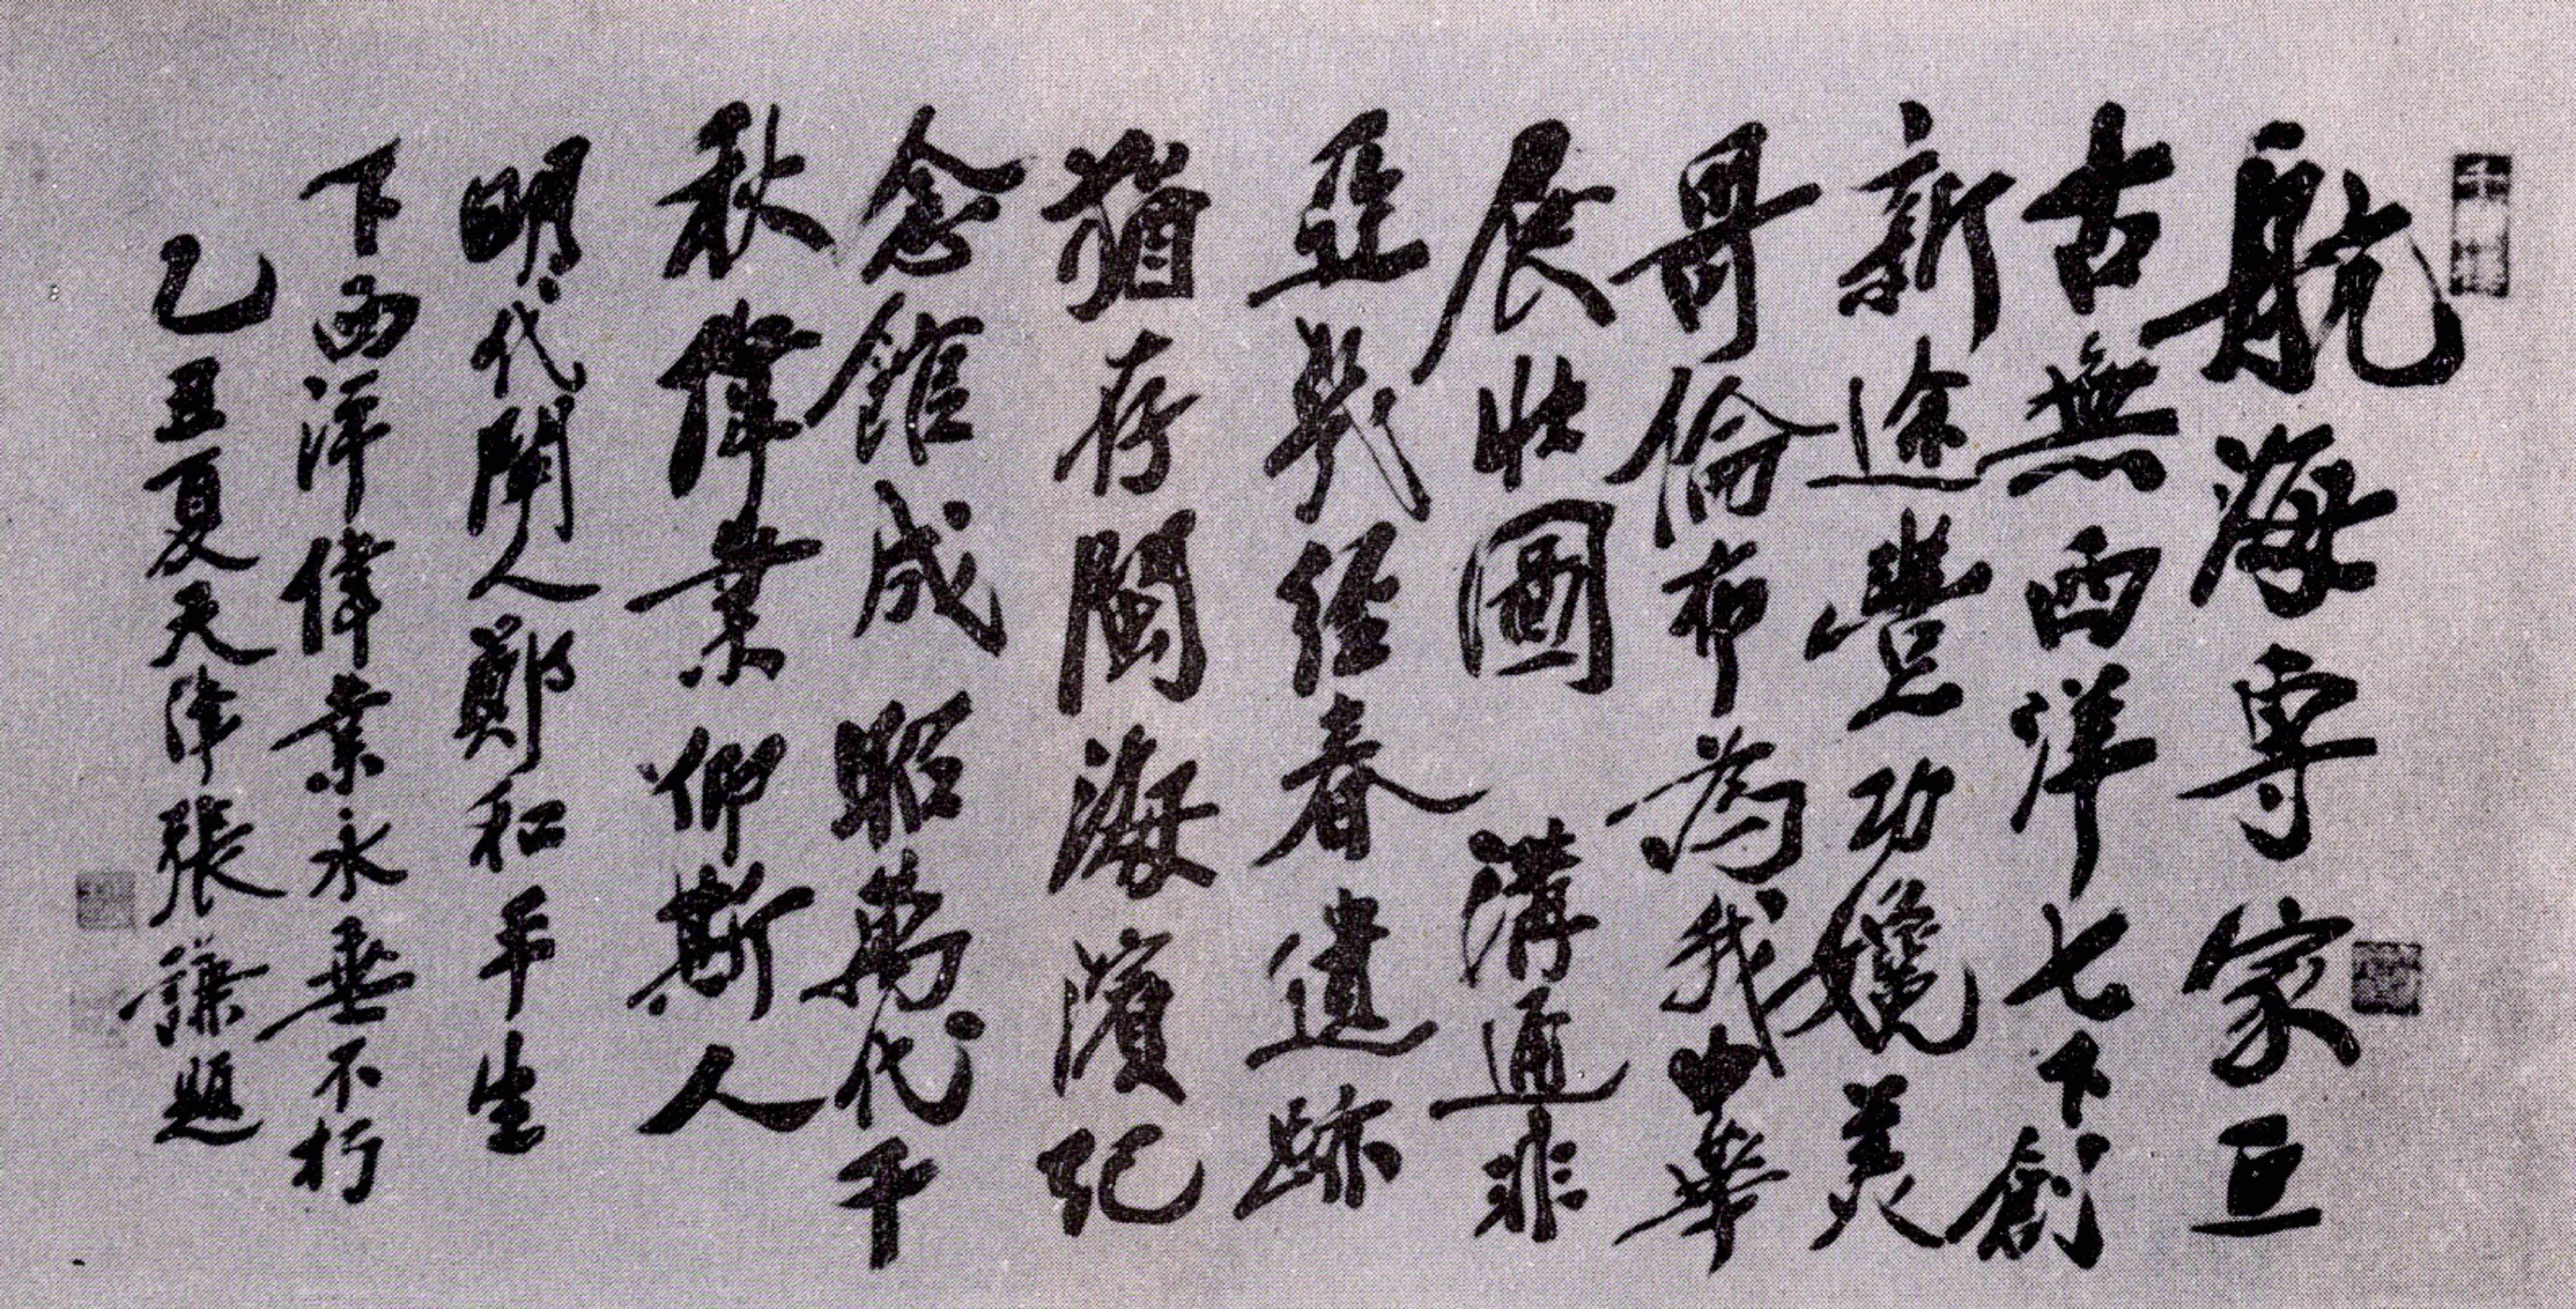 航海專家亘
古無西洋七下創
新途豐功媲美
哥倫布為我中華
展壯圖溝通非
亞幾經春遺跡
猶存閩海濱紀
念館成昭萬代千
秋偉業仰斯人
明代聞人鄭和平生
下西洋偉業永垂不朽
乙丑夏天津張謙題